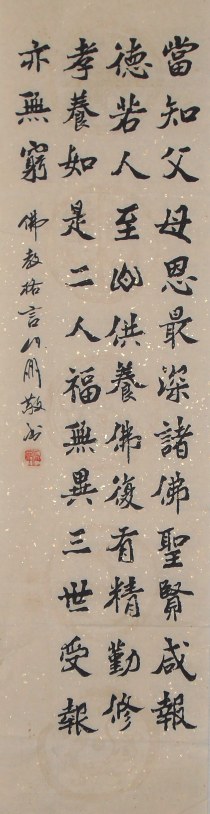 當知父母恩最深諸佛聖賢咸報
德若人至心供養佛復有精勤修
孝養如是二人福無異三世受報
亦無窮
佛教格言
敬書